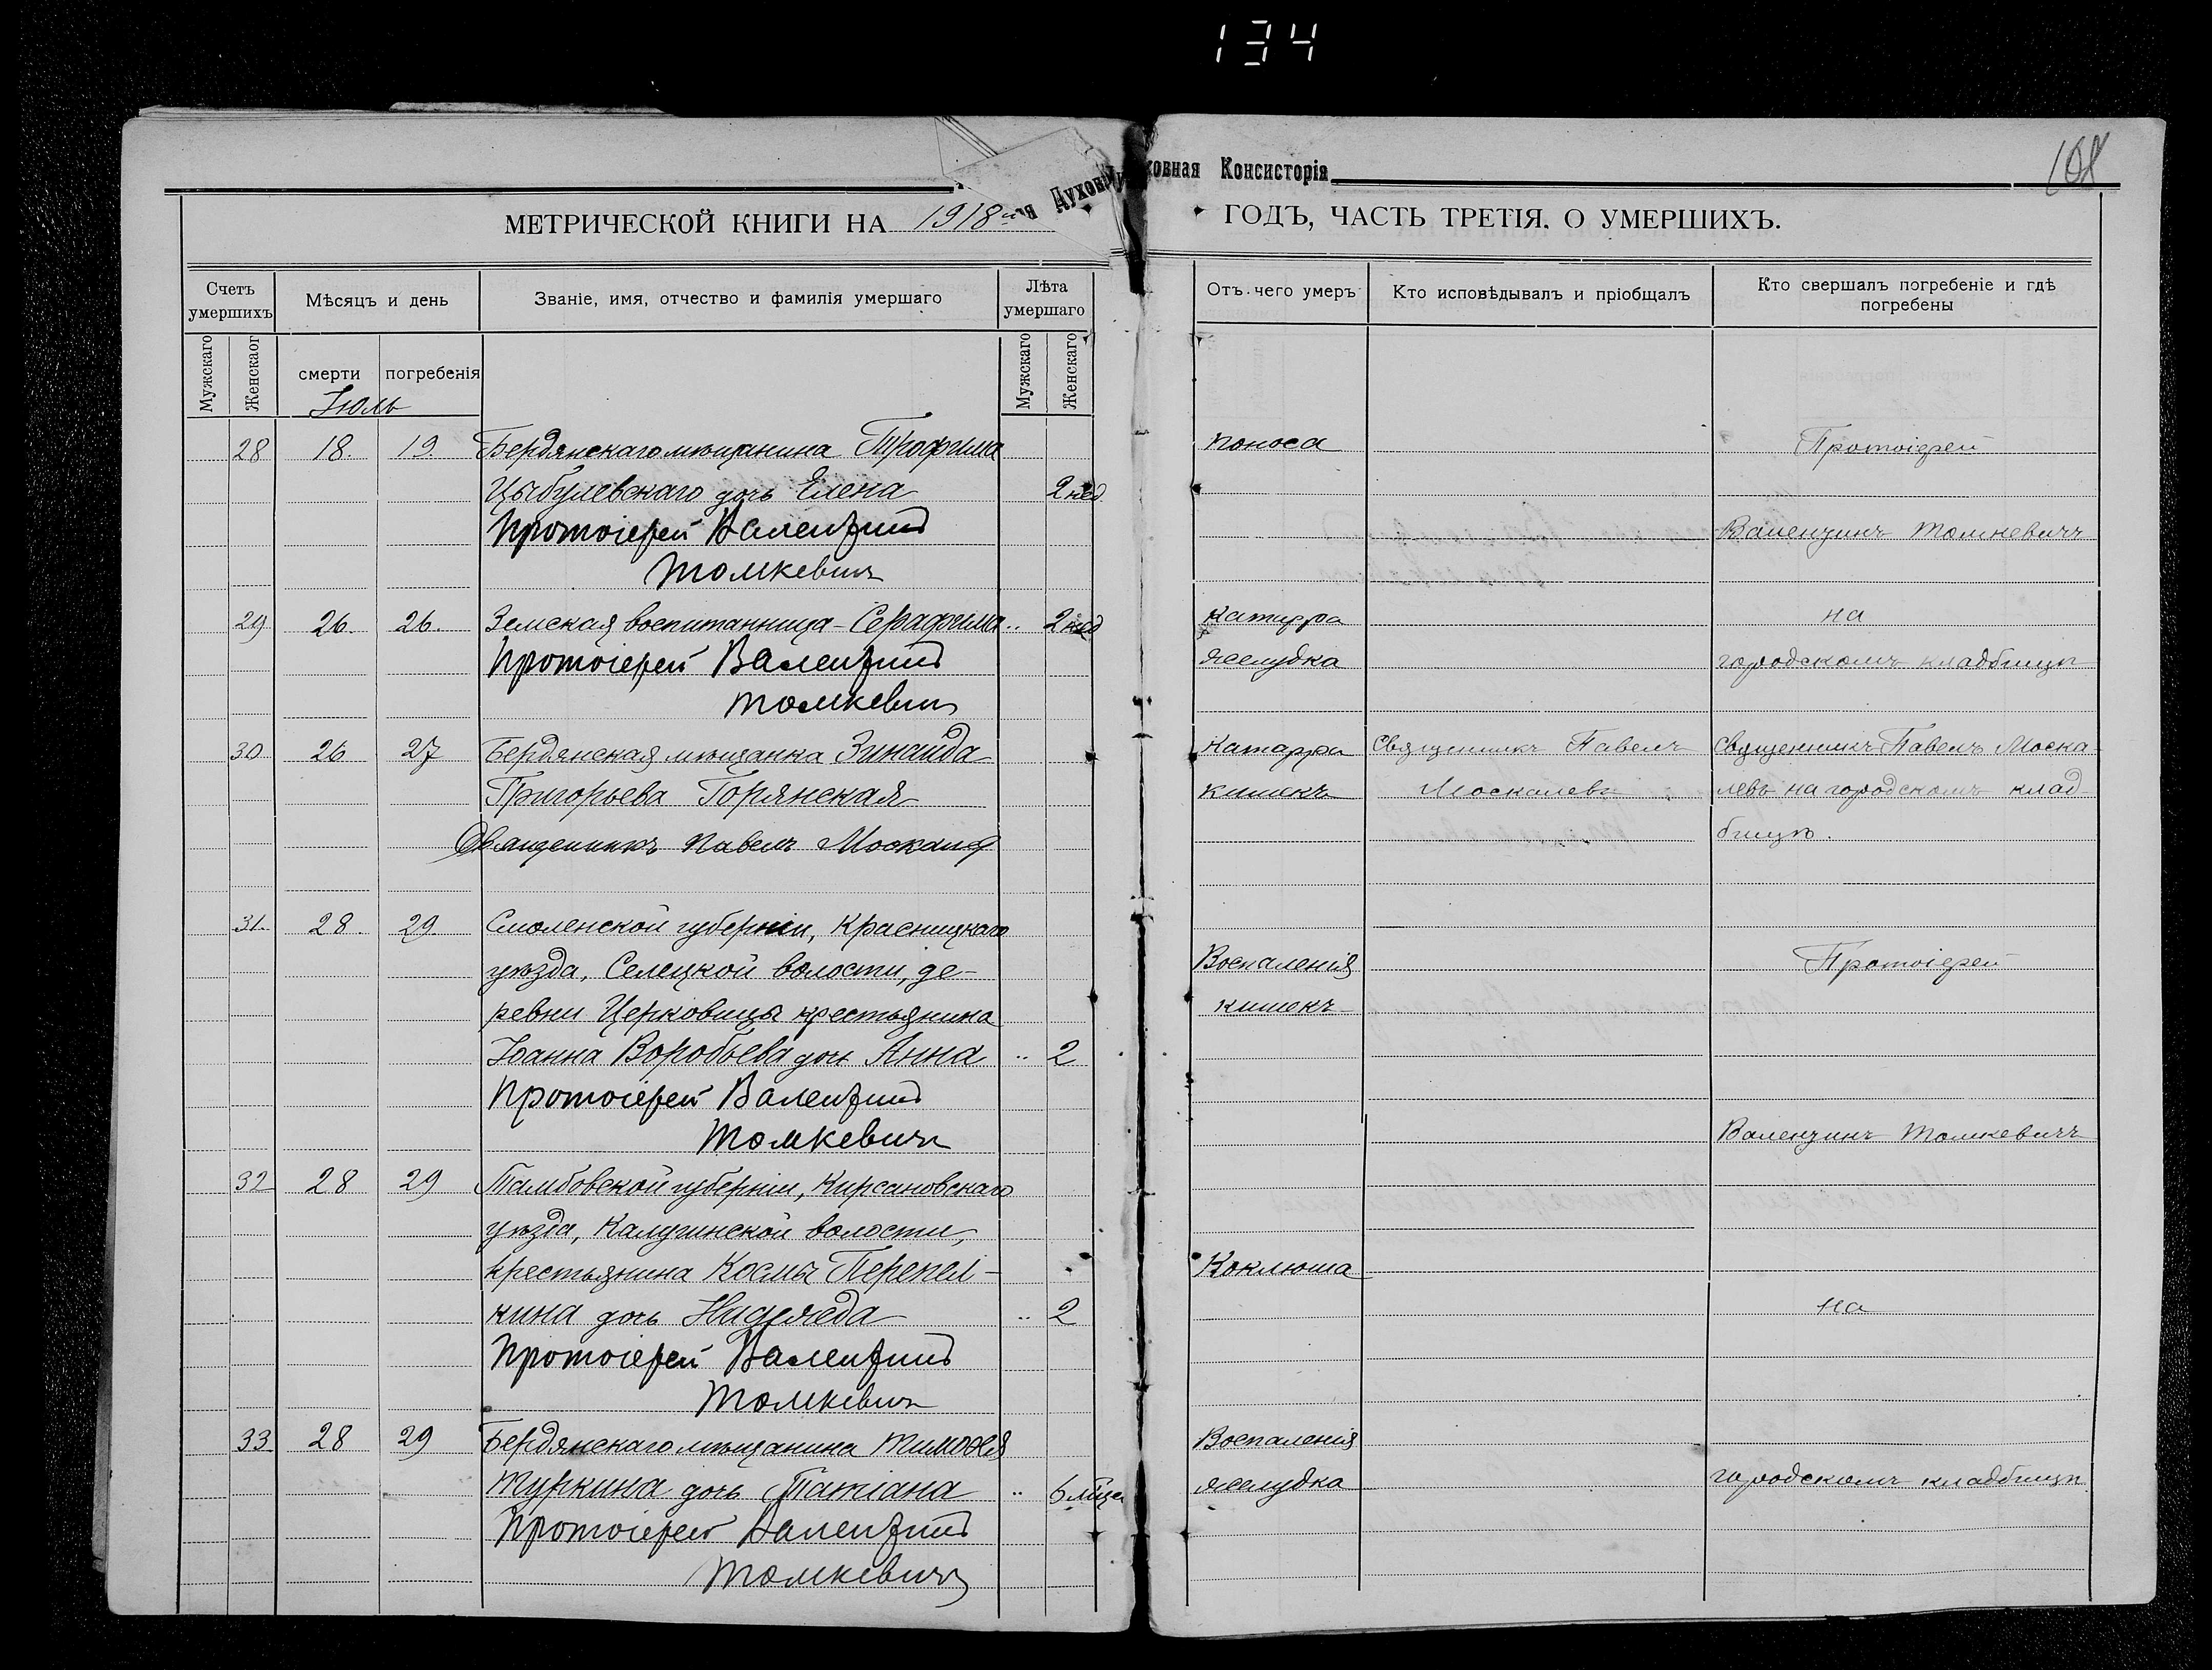 134
Духовная Консисторія
108
МЕТРИЧЕСКОЙ КНИГИ НА 1918 й
ГОДЪ, ЧАСТЬ ТРЕТІЯ. О УМЕРШИХЪ.
Счетъ умершихъ
Мѣсяцъ и день
Званіе, имя, отчество и фамилія умершаго
Лѣта умершаго
Отъ чего умеръ
Кто исповѣдывалъ и пріобщалъ
Кто свершалъ погребеніе и гдѣ
погребены
Мужскаго
Женскаог
смерти
погребенія
Мужскаго
Женскаго
Іюль
28 18. 19. Бердянскаго мѣщанина Трофима поноса Протоіерей
Цыбулевскаго дочь Елена 2 нед
Протоіерей Валентинъ Валентинъ Томкевичъ
Томкевичъ
29 26. 26. Земская воспитанница - Серафима .. 2 нед Катарра на
желудка городскомъ кладбищѣ
Протоіерей Валентинъ
Томкевичъ
30 26 27 Бердянская мѣщанка Зинаида Катарра Священникъ Павелъ Священникъ Павелъ Моска-
Григорьева Горянская кишекъ Москалевъ левъ на городскомъ клад-
Священникъ Павелъ Москалев бищѣ.
31. 28. 29. Смоленской губерніи, Краснинскаго
уѣзда, Селецкой волости, де- Воспаленія Протоіерей
ревни Церковищи крестьянина кишекъ
Іоанна Воробьева дочь Анна .. 2
Протоіерей Валентинъ
Томкевичъ Валентинъ Томкевичъ
32 28 29 Тамбовской губерніи, Кирсановскаго
уѣзда, Калугинской волости,
крестьянина Космы Перепел- Коклюша
кина дочь Надежда .. 2 на
Протоіерей Валентинъ
Томкевичъ
33 28 29 Бердянскаго мѣщанина Тимофея Воспаленія
Туркина дочь Татіана .. 6 мѣсц желудка городскомъ кладбищѣ
Протоіерей Валентинъ
Томкевичъ